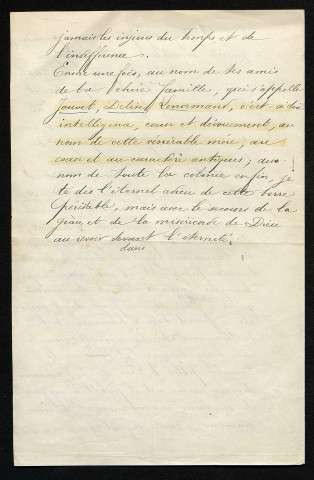 jamais les injures du temps et de
l'indifférence.
Encore une fois, au nom de tes amis
de ta chère famille, qui s'appelle
Jouvet, Delieu, Lenormant, c'est à dire
intelligence, cœur et dévouement, au
nom de cette vénérable mère, au
cœur et au caractère antiques; au
nom de toute la colonie enfin, je
te dis l'éternel adieu de cette terre
périssable, mais avec le secours de la
grâce et de la miséricorde de Dieu
au revoir devant l'éternité.
dans